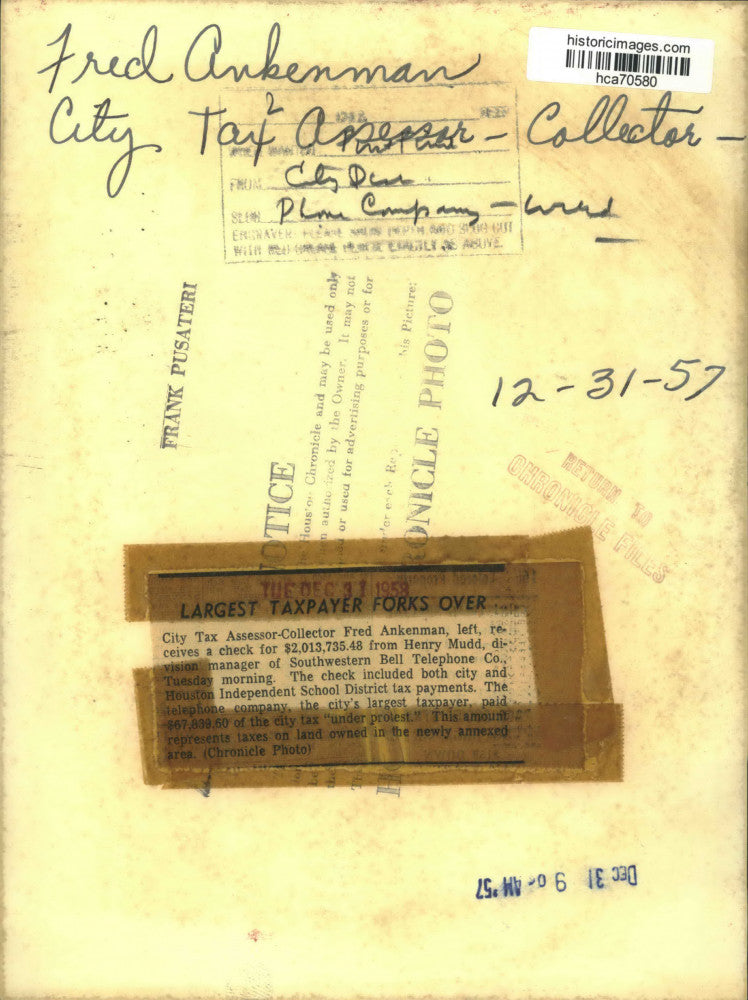 historicimages.com
hca70580
Fred Ankenman
City Tax Assessor - Collector -
2
FROM City Desk
SLUG Phone Company -
ENGRAVER: PLEASE
FRANK PUSATERI
NOTICE
Houston Chronicle and may be used only
authorized by the Owner. It may not
or used for advertising purposes or for
his Picture:
CHRONICLE PHOTO
12-31-57
RETURN TO
CHRONICLE FILES
TUE DEC 31 1958
LARGEST TAXPAYER FORKS OVER
City Tax Assessor-Collector Fred Ankenman, left, re-
ceives a check for $2,013,735.48 from Henry Mudd, di-
vision manager of Southwestern Bell Telephone Co.,
Tuesday morning. The check included both city and
Houston Independent School District tax payments. The
telephone company, the city's largest taxpayer, paid
$67,839.60 of the city tax "under protest." This amount
represents taxes on land owned in the newly annexed
area. (Chronicle Photo)
DEC 31 9 AM '57